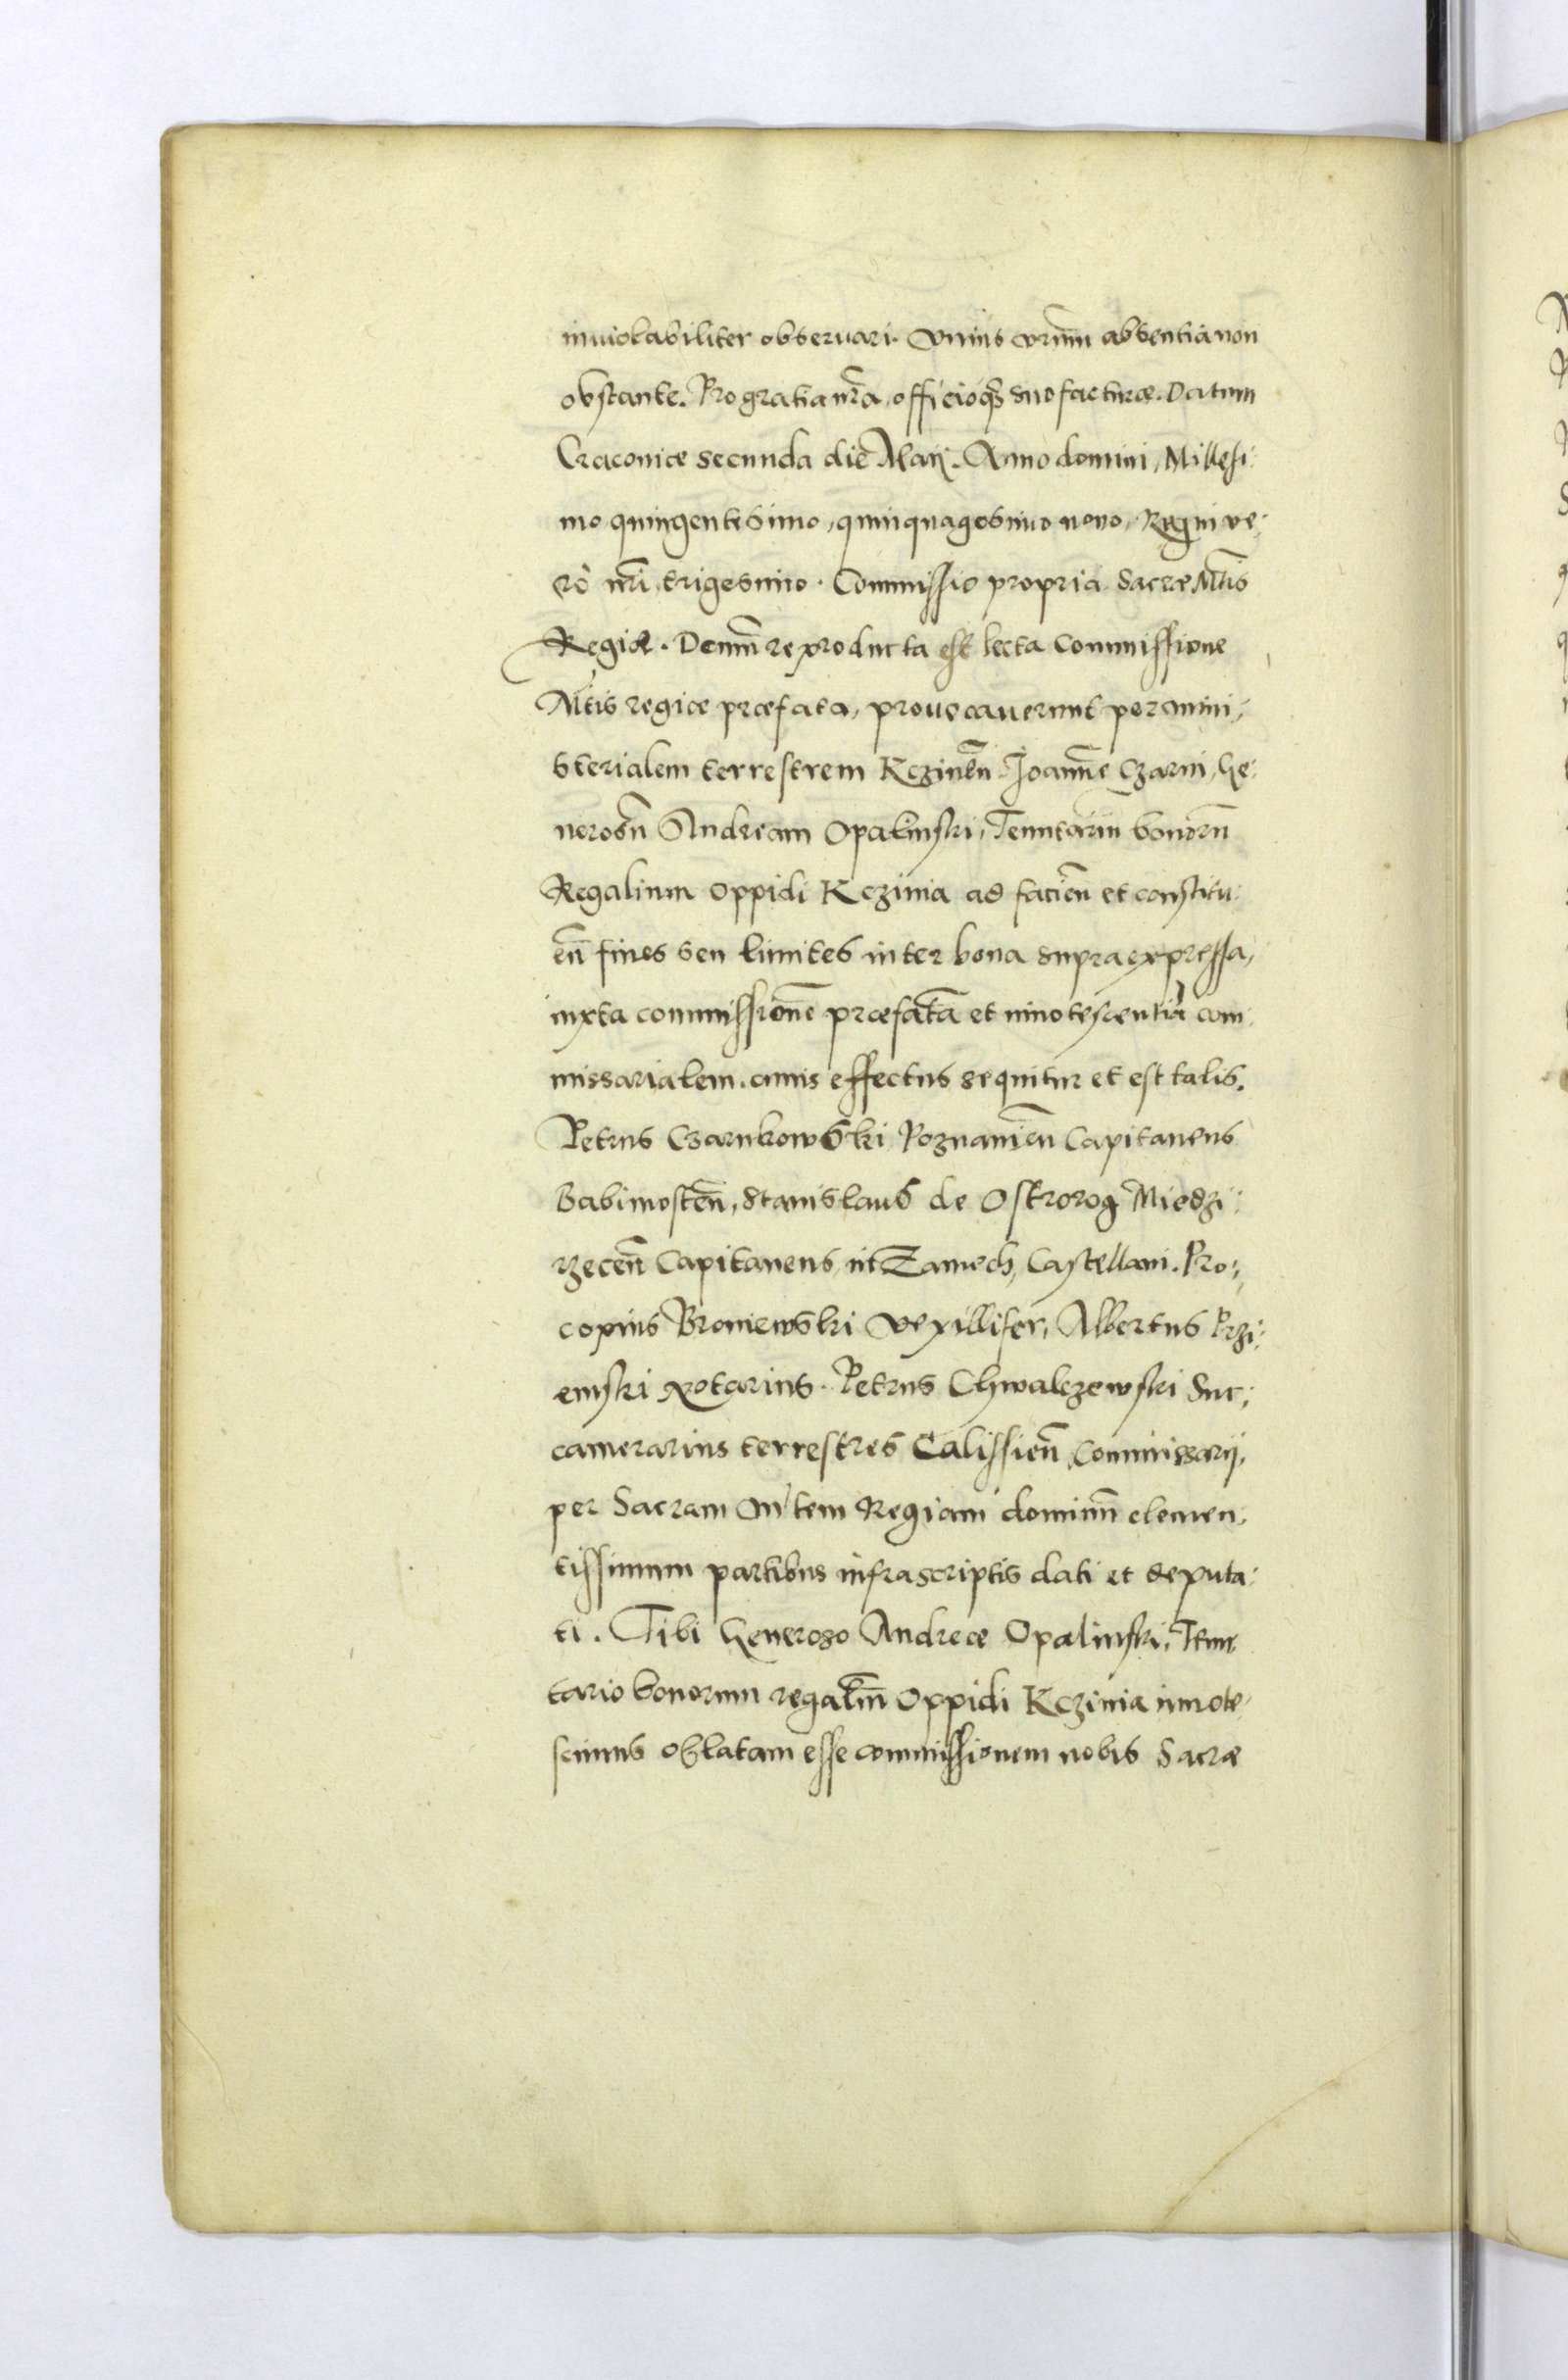 inuiolabiliter obseruari. Vnius vr̃um absentia non
obstante. Pro gratia nr̃a, officioq; suo facturæ. Datum
Cracouiæ secunda die Maij. Anno domini, Millesi:
mo quingentesimo, quinquagesimo nono, Regni ve:
rò nr̃i trigesimo. Commissio propria Sacræ Mtis
Regiæ. Demum̃ reproducta est lecta Commissione
Mtis regiæ præfata, prouocauerunt per mini:
sterialem terrestrem Kczinen̄ Ioannē Czarni, Ge:
nerosū Andream Opalinski, Tenutariū bonorū
Regalium Oppidi Kczinia ad facien̄ et constitu:
en̄ fines seu limites inter bona supraexpressa,
iuxta commissionē præfatā et innotescentiā com:
missarialem. cuius effectus sequitur et est talis.
Petrus Czarnkowski Poznanien̄ Capitaneus
babimosten̄, Stanislaus de Ostrorog Miedzi:
rzecen̄ Capitaneus nt Zamech, Castellani. Pro:
copius Broniewski Vexillifer, Albertus Przi:
emski Notarius. Petrus Chwalczewski Suc:
camerarius terrestres Calissien̄ Commissarij,
per Sacram Mtem Regiam dominū clemen:
tissimum partibus infrascriptis dati et deputa:
ti. Tibi Generoso Andreæ Opalinski, Tenu:
tario bonorum regaliū Oppidi Kczinia innote:
scimus oblatam esse commissionem nobis Sacræ